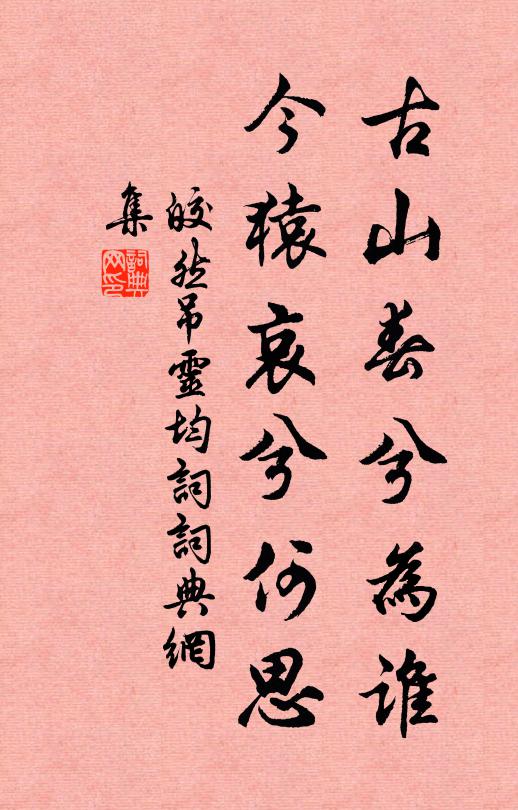 古山春兮為誰
今猿哀兮何思
皎然吊靈均詞詞典網
集
詞典網印